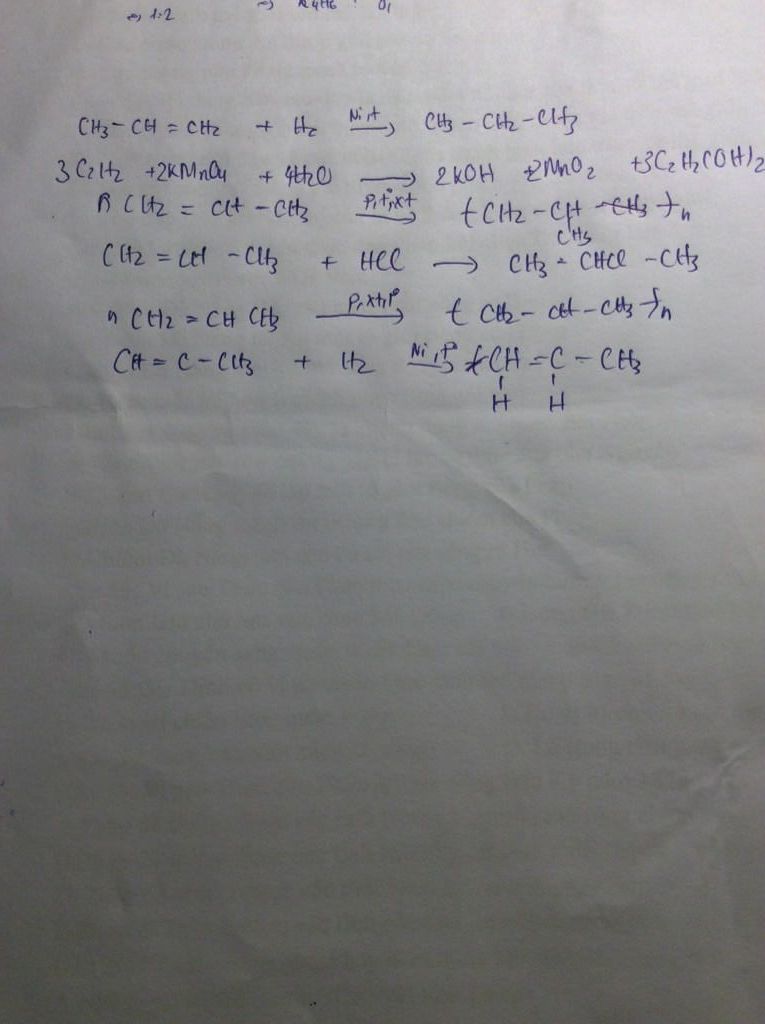 ⇒ 1:2 ⇒
CH3 – CH = CH2 + H2 Ni,t → CH3 – CH2 – CH3
3C2H2 + 2KMnO4 + 4H2O → 2KOH + 2MnO2 + 3C2H2(OH)2
n CH2 = CH – CH3 P,t°,xt → ( CH2 – CH – )n
CH3
CH2 = CH – CH3 + HCl → CH3 – CHCl – CH3
n CH2 = CH CH3 P,xt,t° → ( CH2 – CH – CH3 )n
CH = C – CH3 + H2 Ni,t° → CH = C – CH3
H H